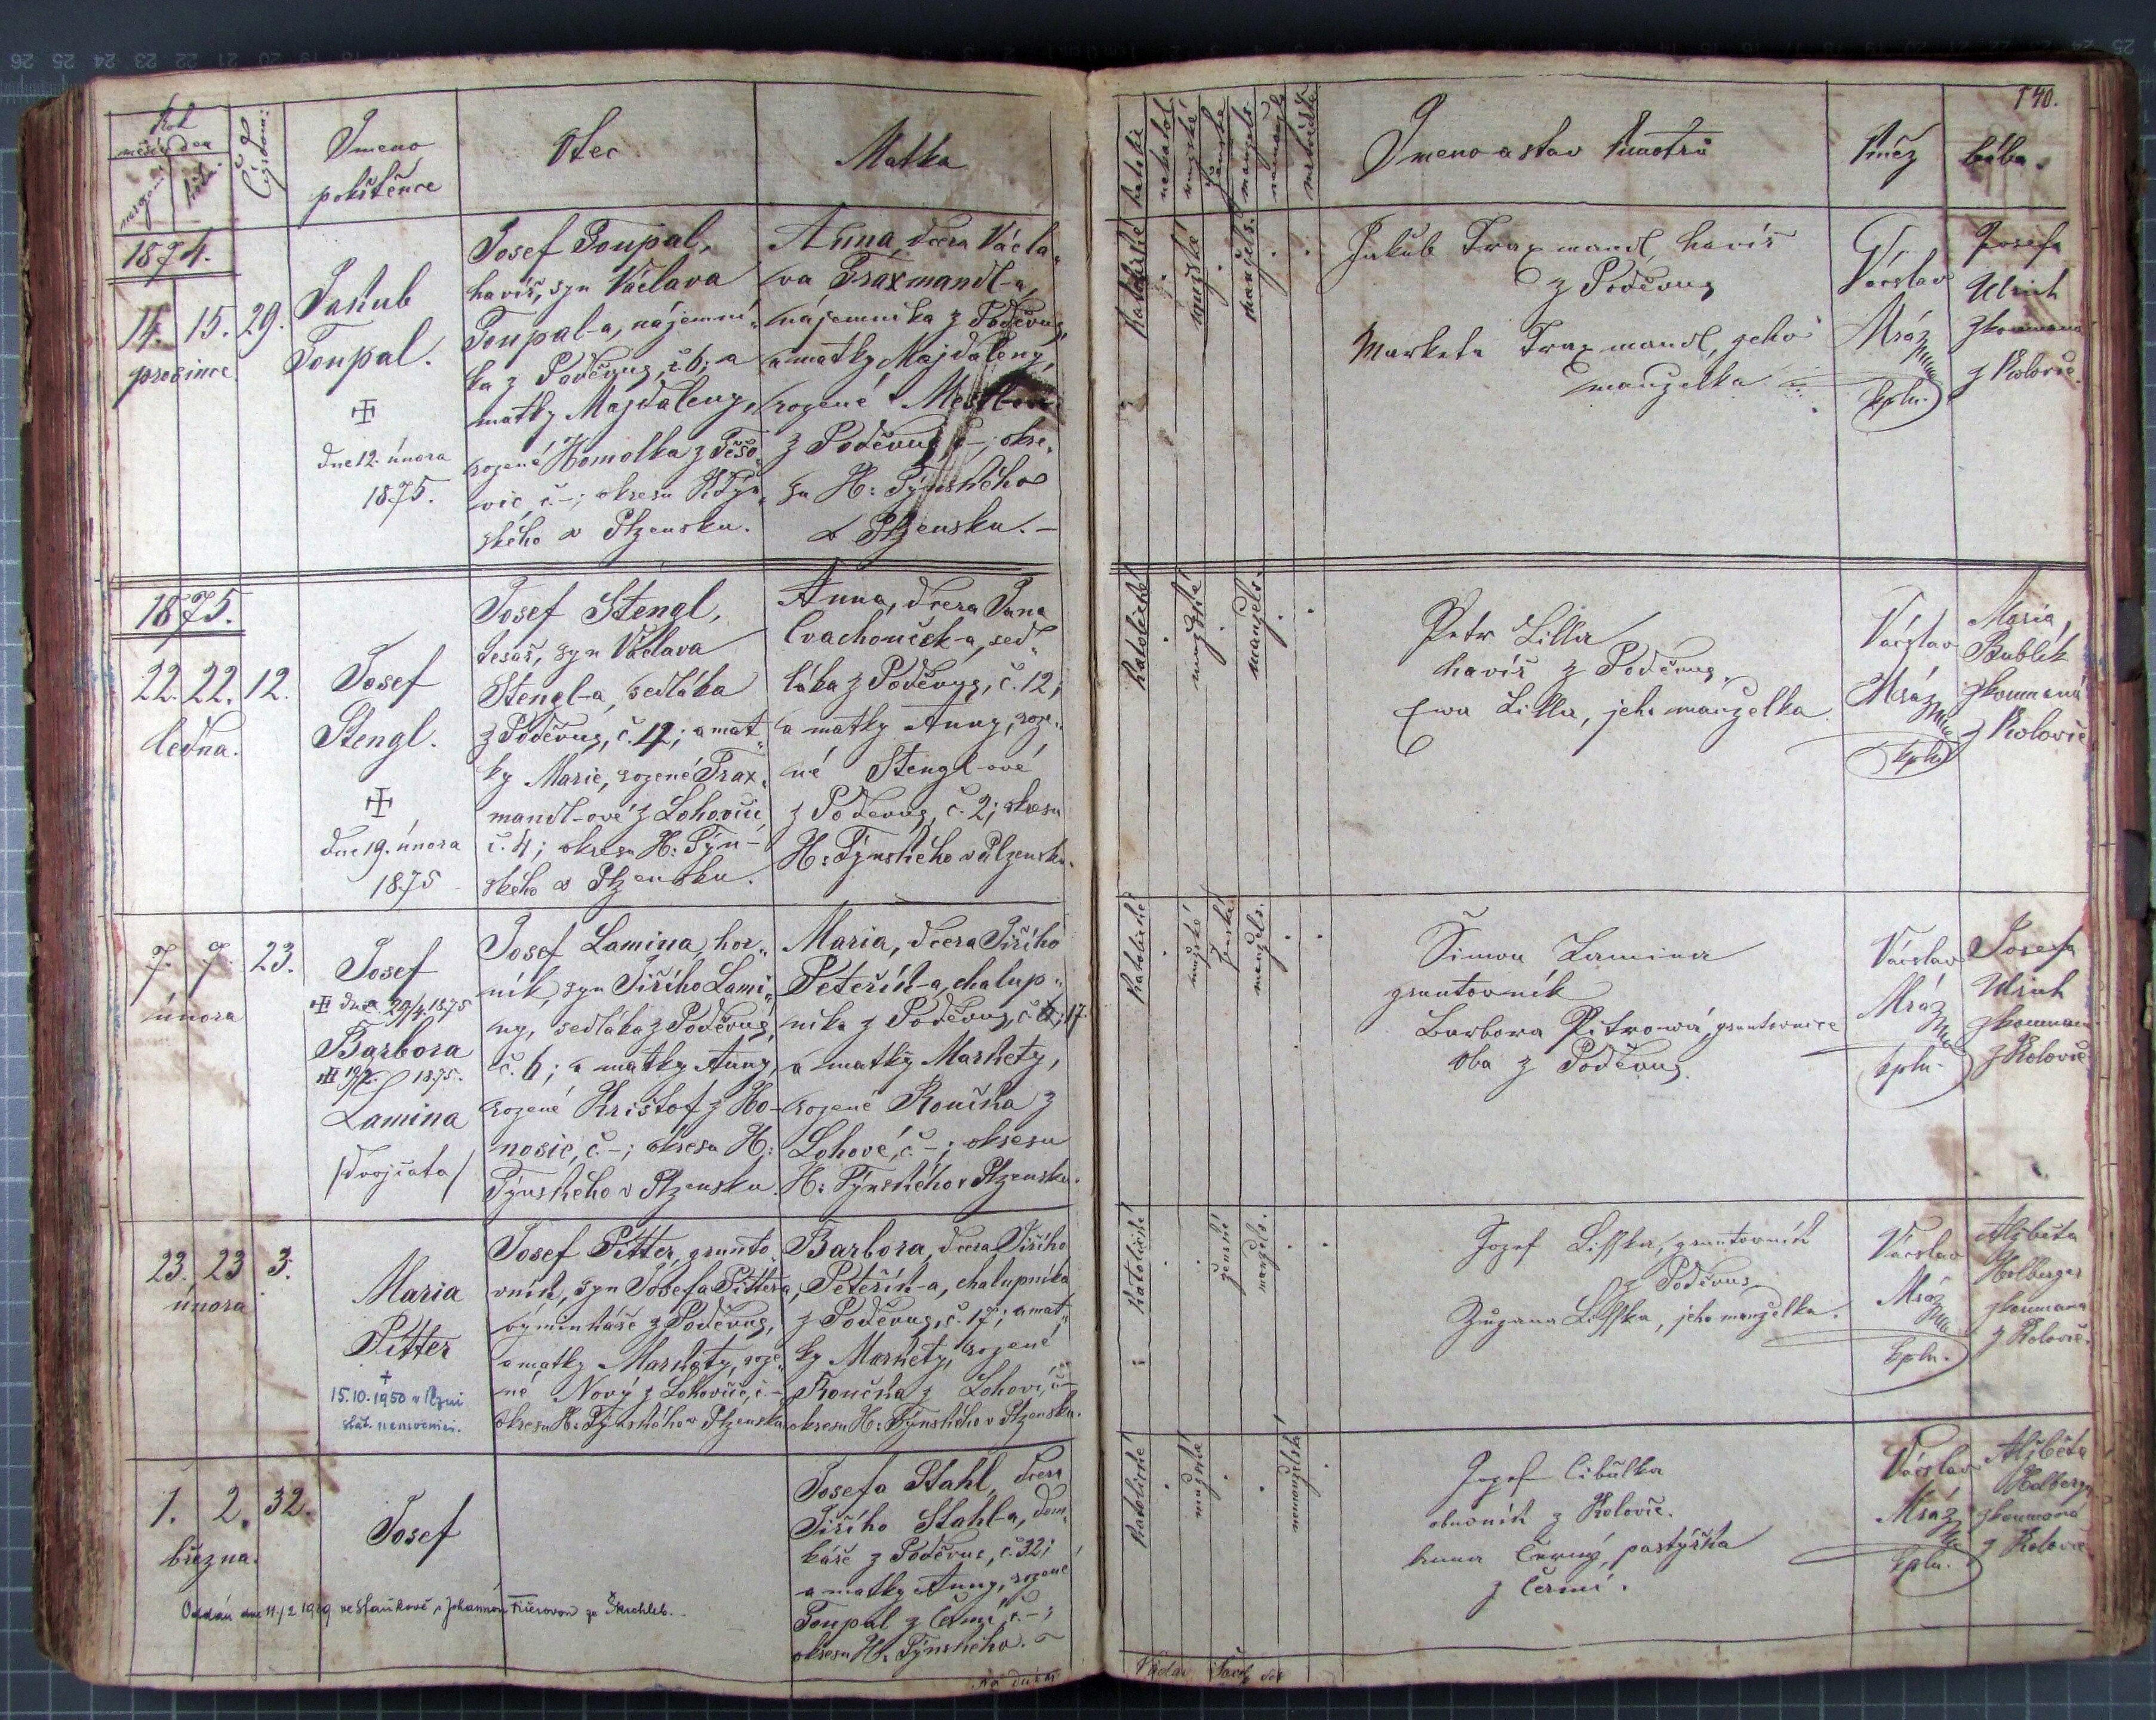 140.
Rok
měsíc den
narození
křtu
Čís. domu
Jmeno
pokřtěnce
Otec
Matka
katolické
nekatol.
mužské
ženské
manžels.
nemanžels.
mrtvě
Jmeno a stav kmotrů
Kněz
bába.
1874.
14. 15. 29.
prosince.
Jakub
Toupal.
dne 12. února
1875.
Josef Toupal,
havíř, syn Václava
Toupal-a, nájemní„
ka z Poděvus, č. 6; a
matky Majdaleny,
rozené Homolka z Těšo„
vic, č–; okresu H. Týn„
ského v Plzensku.
Anna, dcera Václa„
va Traxmandl-a,
nájemníka z Poděvus,
a matky Majdaleny,
rozené
z Poděvus, č–; okre„
su H: Týnského
v Plzensku.–
Katolické
mužské
manžels.
Jakub Traxmandl havíř
z Poděvus
Marketa Traxmandl, geho
manzelka
Václav
Mráz
kpln.
Josefa
Ulrich
zkoumaná
z Kolovče.
1875.
22. 22. 12.
ledna.
Josef
Stengl.
dne 19. února
1875
Josef Stengl,
tesař, syn Václava
Stengl-a, sedláka
z Poděvus, č. 12; a mat„
ky Marie, rozené Trax„
mandl-ové z Lohovčic,
č. 4; okresu H: Týn–
ského v Plzensku.
Anna, dcera Jana
Cvachouček-a, sed„
láka z Poděvus, č. 12;
a matky Anny, roze„
né Stengl-ové
z Poděvus, č. 2; okresu
H: Týnského v Plzensku.
katolické
mužské
manžels.
Petr Lilla
havíř z Poděvus.
Ewa Lilla, jeho manželka.
Václav
Mráz
kpln.
Maria,
Bublík
zkoumaná
z Kolovče
7. 7. 23.
února
Josef
dne 29/4 1875
Barbora
1875.
Lamina
/dvojčata/
Josef Lamina, hor„
ník, syn Jiřího Lami„
ny, sedláka z Poděvus,
č. 6; a matky Anny,
rozené Krištof z Ho–
nosic, č–; okresu H:
Týnského v Plzensku.
Maria, dcera Jiřího
Peteřík-a, chalup„
níka z Poděvus, č. 17.
a matky Markety,
rozené Koučka z
Lohové, č–; okresu
H: Týnského v Plzensku.
Katolické
mužské
ženské
manžels.
Šimon Lamina
gruntovník
Barbora Pitrowá, gruntovnice
oba z Poděvus.
Václav
Mráz
kpln.
Josefa
Ulrich
zkouman
z Kolovče
23. 23 3.
února
Maria
Pitter
+
15.10.1950 v Plzni
stát. nemocnici.
Josef Pitter, grunto„
vník, syn Josefa Pittera,
výminkáře z Poděvus,
a matky Markety, roze„
né Nový z Lohovčic, č–
okresu H: Týnského v Plzensku
Barbora, dcera Jiřího
Peteřík-a, chalupníka
z Poděvus, č. 17; a mat„
ky Markety, rozené
Koučka z Lohové, č–
okresu H: Týnského v Plzensku.
Katolické
ženské
manžels.
Jozef Liffka, gruntovník
z Poděvus
Zuzana Liffka, jeho manželka.
Václav
Mráz
kpln.
Alžběta
Holberger
zkoumana
z Kolovče.
1. 2. 32.
března.
Josef
Oddán dne 11./2 1919 ve Staňkově s Johannou
ze Škrchleb.
Josefa Stahl, dcera
Jiřího Stahl-a, dom„
káře z Poděvus, č. 32;
a matky Anny, rozené
Toupal z Černí, č–;
okresu H. Týnského.
Katolické
mužské
nemanželské
Jozef Cibulka
obuvník z Kolovče.
Anna Černý, pastýřka
z Černí.
Václav
Mráz
kpln.
Alžběta
Holberger
zkoumaná
z Kolovče